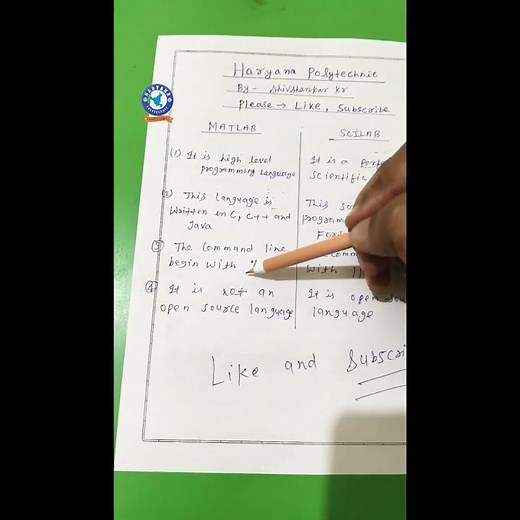 Haryana Polytechnic
By - Shivshankar Kr
Please → Like, Subscribe
MATLAB
(1) It is high level
programming Language
(2) This language is
written in C, C++ and
Java
(3) The command line
begin with %
(4) It is not an
open source language
SCILAB
It is a
Scientific
This
program
with //
It is open
language
Like and
HARYANA